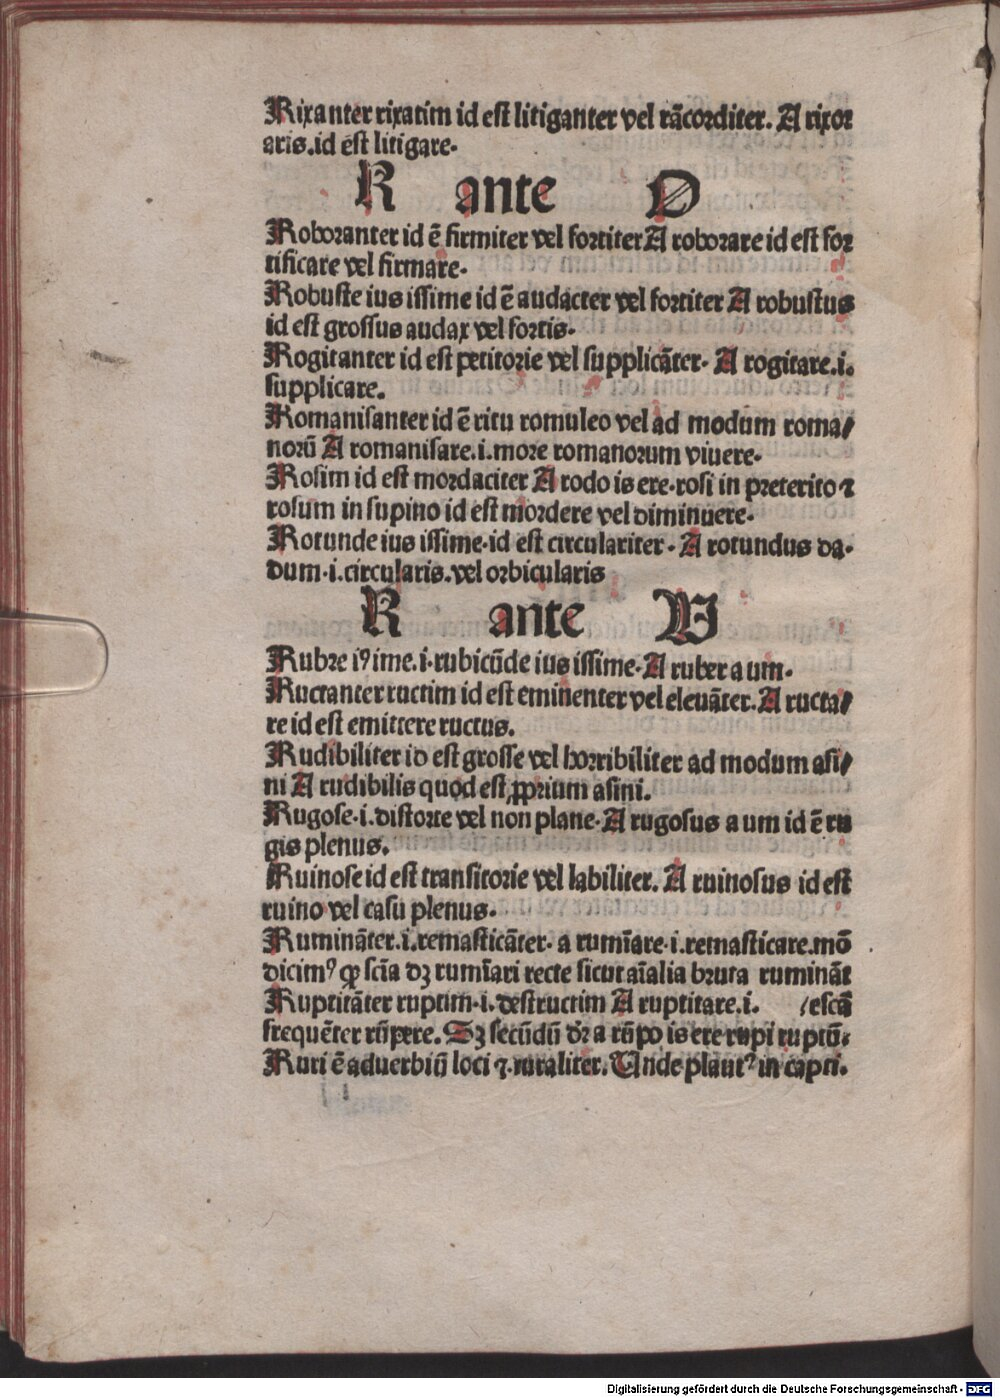 Rixanter rixatim id est litiganter vel rãcorditer. A rixor
aris.id est litigare.
R ante O
Roboranter id ẽ firmiter vel fortiter A roborare id est for
tificare vel firmare.
Robuste ius issime id ẽ audacter vel fortiter A robustus
id est grossus audax vel fortis.
Rogitanter id est petitorie vel supplicãter. A rogitare.i.
supplicare.
Romanisanter id ẽ ritu romuleo vel ad modum roma/
norũ A romanisare.i.more romanorum viuere.
Rosim id est mordaciter A rodo is ere.rosi in preterito ⁊
rosum in supino id est mordere vel diminuere.
Rotunde ius issime.id est circulariter. A rotundus da.
dum.i.circularis.vel orbicularis
R ante V
Rubre iꝰ ime.i.rubicũde ius issime.A ruber a um.
Ructanter ructim id est eminenter vel eleuãter.A ructa/
re id est emittere ructus.
Rudibiliter id est grosse vel horribiliter ad modum asi/
ni A rudibilis quod est ꝓprium asini.
Rugose.i.distorte vel non plane.A rugosus a um id ẽ ru
gis plenus.
Ruinose id est transitorie vel labiliter. A ruinosus id est
ruino vel casu plenus.
Ruminãter.i.remasticãter. a rumĩare.i.remasticare.mõ
dicimꝰ ꝙ scĩa dꝫ rumĩari recte sicut aĩalia bruta ruminãt
Ruptitãter ruptim.i.destructim A ruptitare.i. /escã
frequẽter rũpere. Sꝫ secũdũ dr̃ a rũpo is ere rupi ruptũ.
Ruri ẽ aduerbiũ loci ⁊.ruraliter. Unde plautꝰ in capti.
Digitalisierung gefördert durch die Deutsche Forschungsgemeinschaft - DFG